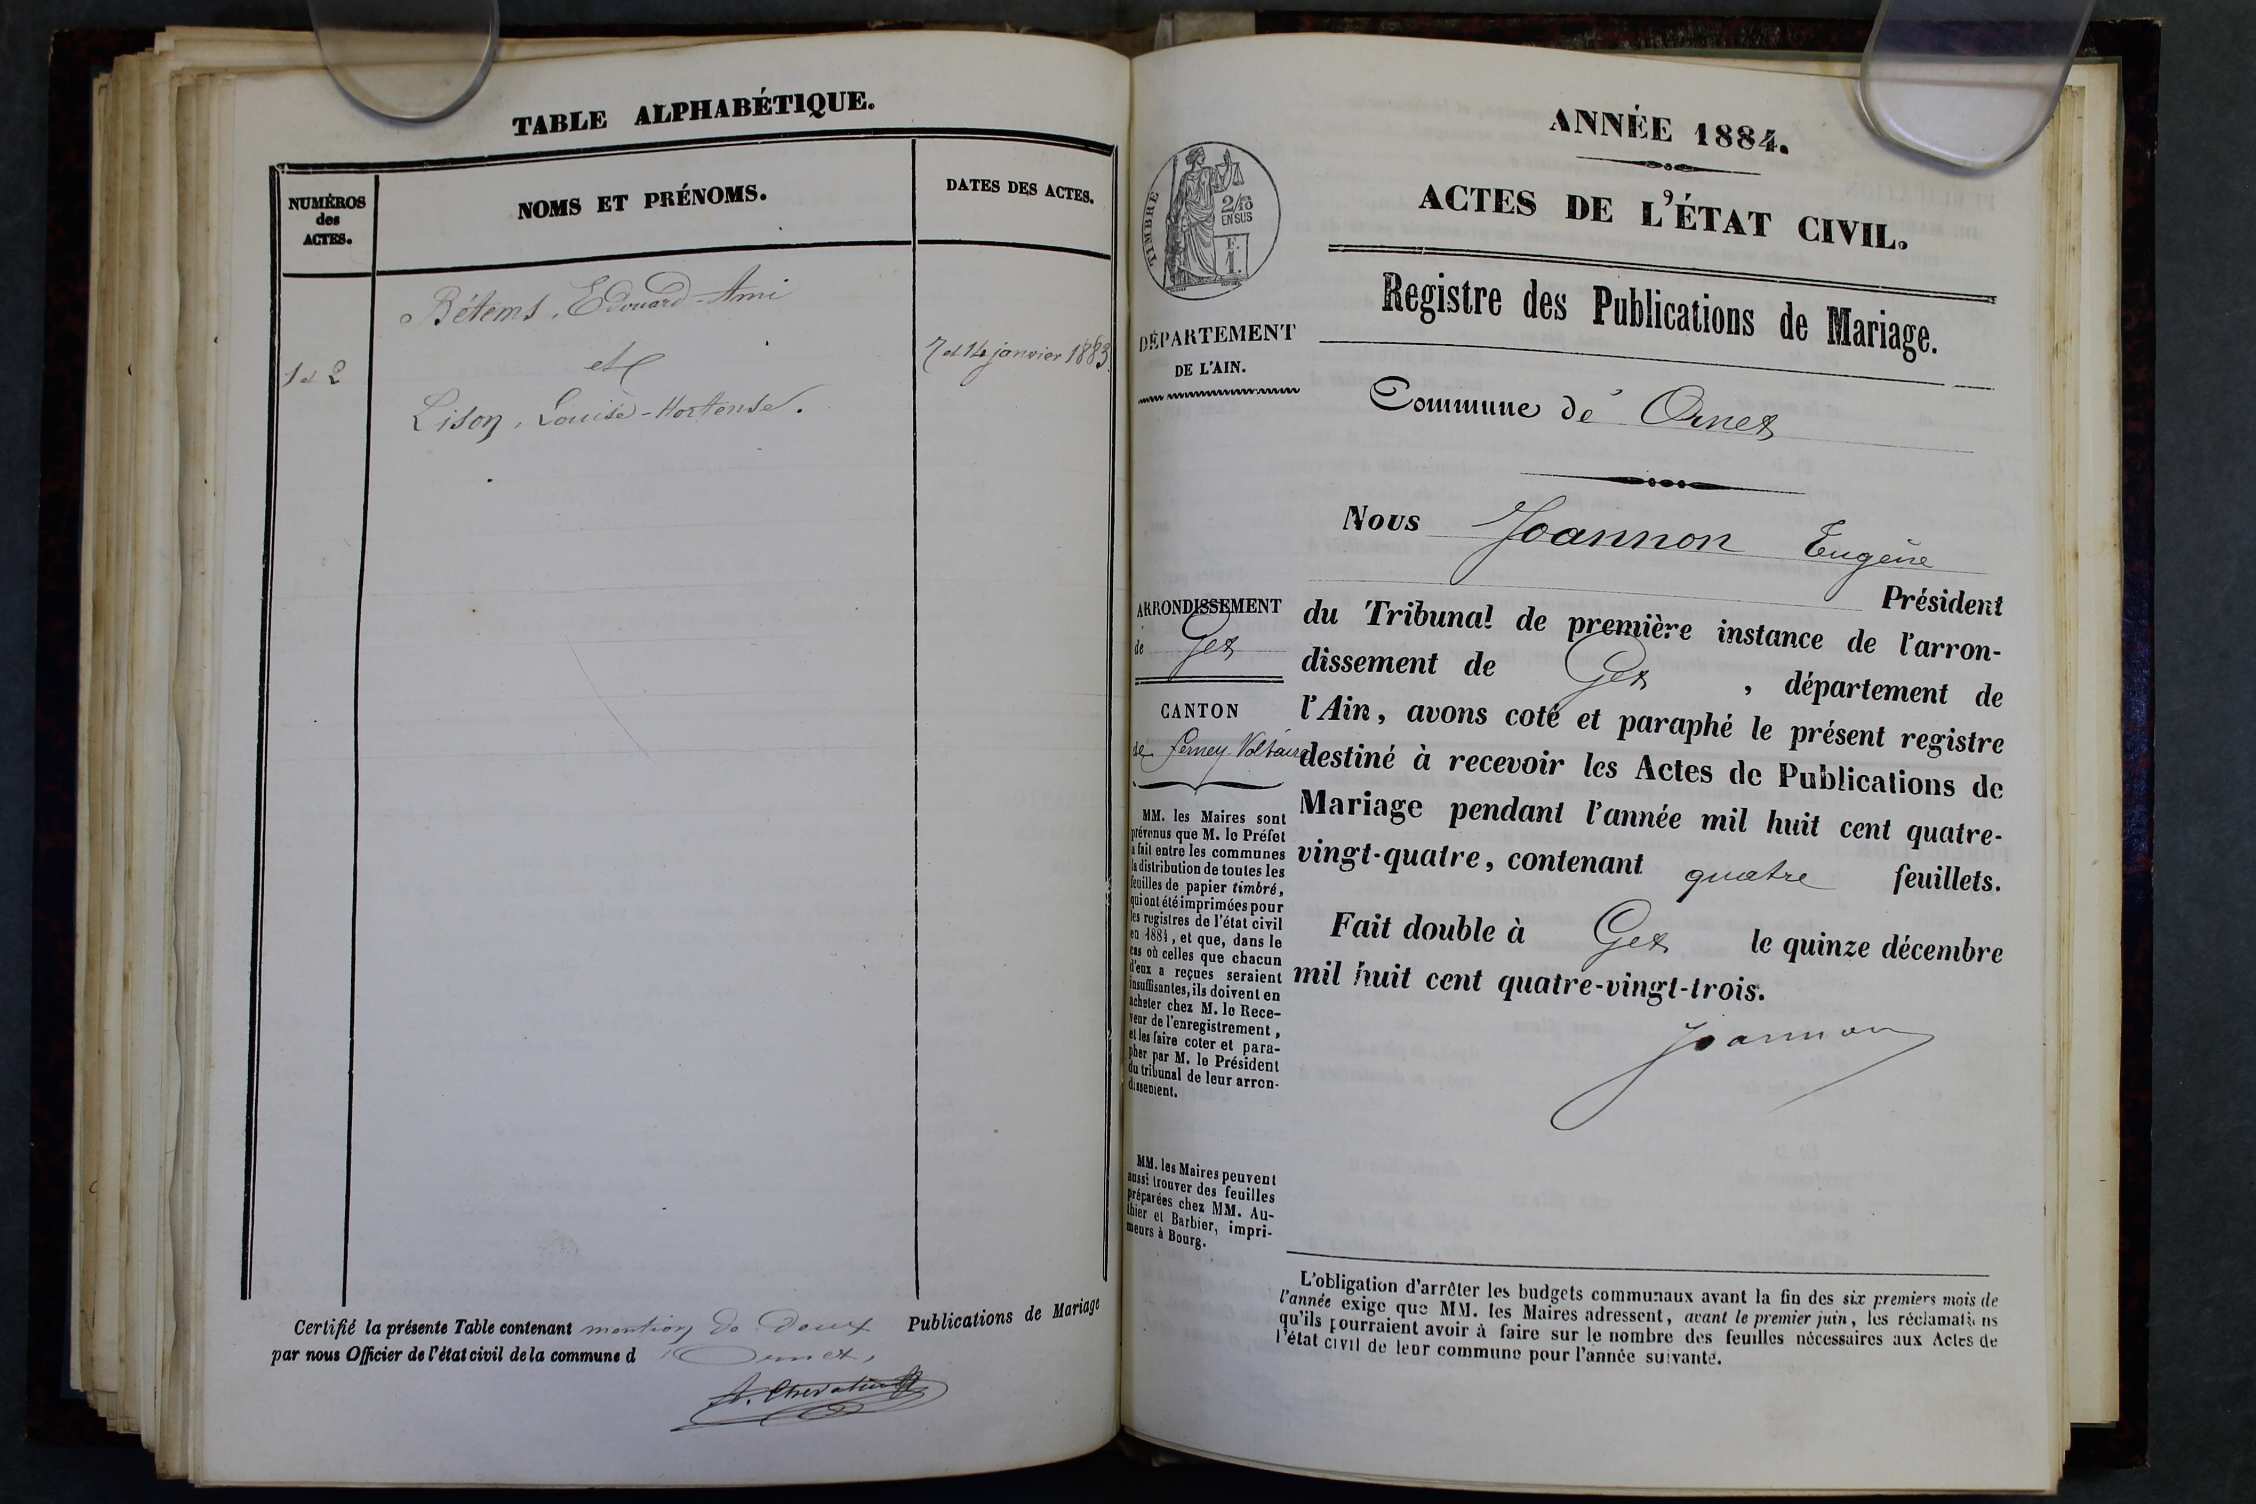 TABLE ALPHABÉTIQUE.
NUMÉROS
des
ACTES.
NOMS ET PRÉNOMS.
DATES DES ACTES.
Bétems, Edouard-Ami
1 et 2
et
7 et 14 janvier 1883.
Lison, Louise-Hortense.
Certifié la présente Table contenant mention de deux Publications de Mariage
par nous Officier de l'état civil de la commune d'Ornex,
ANNÉE 1884.
ACTES DE L'ÉTAT CIVIL.
TIMBRE
2/10
EN SUS
F.
1.
DÉPARTEMENT
DE L'AIN.
Registre des Publications de Mariage.
Commune de Ornex
ARRONDISSEMENT
de Gex
CANTON
de Ferney-Voltaire
MM. les Maires sont
prévenus que M. le Préfet
a fait entre les communes
la distribution de toutes les
feuilles de papier timbré,
qui ont été imprimées pour
les registres de l'état civil
en 1884, et que, dans le
cas où celles que chacun
d'eux a reçues seraient
insuffisantes, ils doivent en
acheter chez M. le Rece-
veur de l'enregistrement,
et les faire coter et para-
pher par M. le Président
du tribunal de leur arron-
dissement.
MM. les Maires peuvent
aussi trouver des feuilles
préparées chez MM. Au-
thier et Barbier, impri-
meurs à Bourg.
Nous Joannon Eugène
Président
du Tribunal de première instance de l'arron-
dissement de Gex, département de
l'Ain, avons coté et paraphé le présent registre
destiné à recevoir les Actes de Publications de
Mariage pendant l'année mil huit cent quatre-
vingt-quatre, contenant quatre feuillets.
Fait double à Gex le quinze décembre
mil huit cent quatre-vingt-trois.
Joannon
L'obligation d'arrêter les budgets communaux avant la fin des six premiers mois de
l'année exige que MM. les Maires adressent, avant le premier juin, les réclamations
qu'ils pourraient avoir à faire sur le nombre des feuilles nécessaires aux Actes de
l'état civil de leur commune pour l'année suivante.